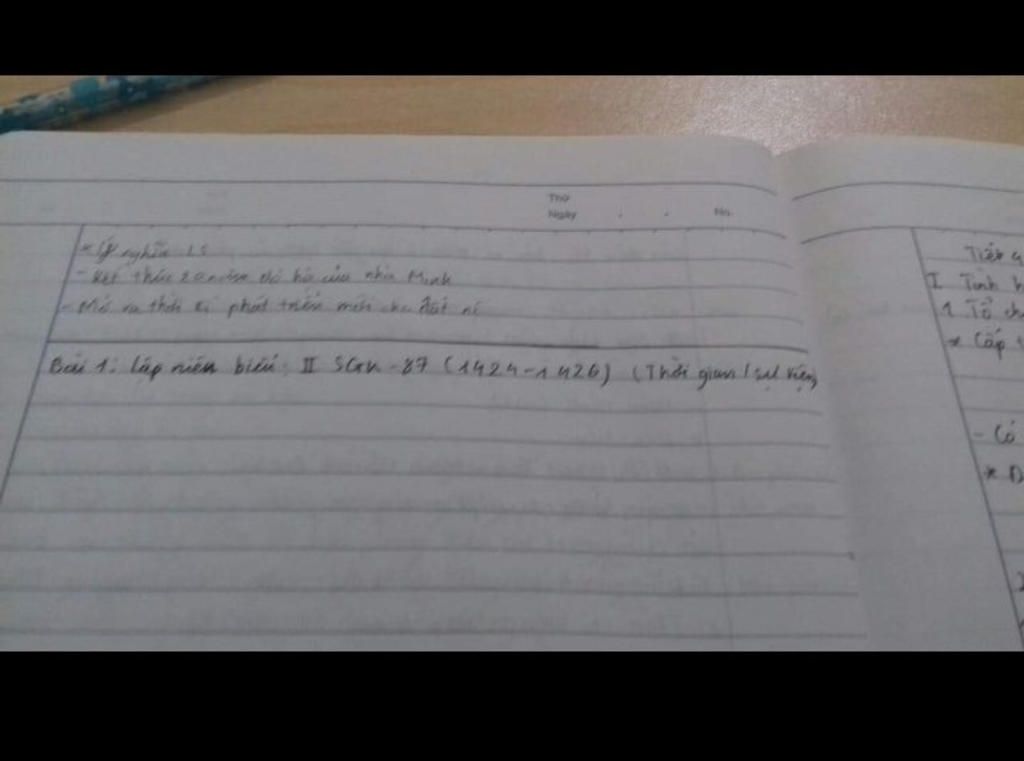 Thứ
Ngày . . No.
* Ý nghĩa LS
- Kết thúc 20 năm đô hộ của nhà Minh
- Mở ra thời kì phát triển mới cho đất
Bài 1: Lập niên biểu: II SGK - 87 (1424-1426) (Thời gian / sự kiện)
Tiết
I Tình h
1 Tổ ch
* Cấp
- Có
* Đ